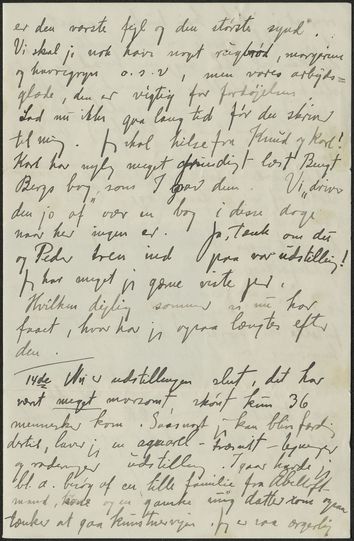 er den værste fejl og den største synd".
Vi skal jo nok have noget rugbrød, margarine
og havregryn o.s.v, men vores arbejds=
glæde, den er vigtig for fordøjelsen.
Lad nu ikke gaa lang tid før du skriver
til mig. Jeg skal hilse fra Knud og Karl!
Karl har nylig meget grundigt læst Bengt
Bergs bog, som I gav dem. Vi "driver
den jo af" vær en bog i disse dage
naar her ingen er. Ja, tænk om du
og Peder kom ind paa vor udstilling!
Jeg har meget jeg gerne viste jer.
Hvilken dejlig sommer vi nu har
faaet, hvor har jeg ogsaa længtes efter
den.
14de Nu er udstillingen slut, det har
været meget morsomt skønt kun 36
mennesker kom. Saasnart jeg kan blive færdig
dertil, laver jeg en aquarel- træsnit- tegninger
og raderinger udstilling. I gaar havde jeg
bl. a. besøg af en lille familie fra Abeltoft
mand, kone og en ganske ung datter som ogsaa
tænker at gaa kunstnervejen. Jeg er saa ærgerlig